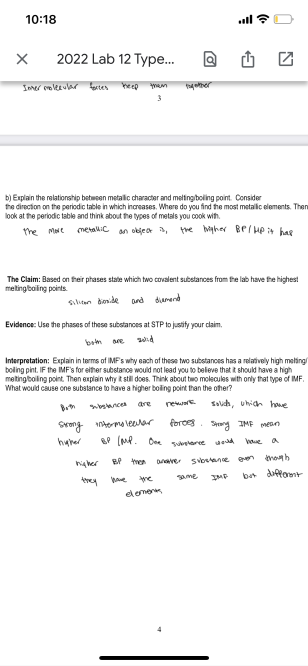 10:18
2022 Lab 12 Type...
Intermolecular forces keep them together
3
b) Explain the relationship between metallic character and melting/boiling point. Consider
the direction on the periodic table in which increases. Where do you find the most metallic elements. Then
look at the periodic table and think about the types of metals you cook with.
The more metallic an object is, the higher BP/MP it has
The Claim: Based on their phases state which two covalent substances from the lab have the highest
melting/boiling points.
silicon dioxide and diamond
Evidence: Use the phases of these substances at STP to justify your claim.
both are solid
Interpretation: Explain in terms of IMF's why each of these two has a relatively high melting/
boiling pint. IF the IMF's for either substance would not lead you to believe that it should have a high
melting/boiling point. Then explain why it still does. Think about two molecules with only that type of IMF.
What would cause one substance to have a higher boiling point than the other?
Both substances are network solids, which have
strong intermolecular forces. Strong IMF mean
higher BP/MP. One substance would have a
higher BP then another substance even though
they have the same IMF but different
elements
4